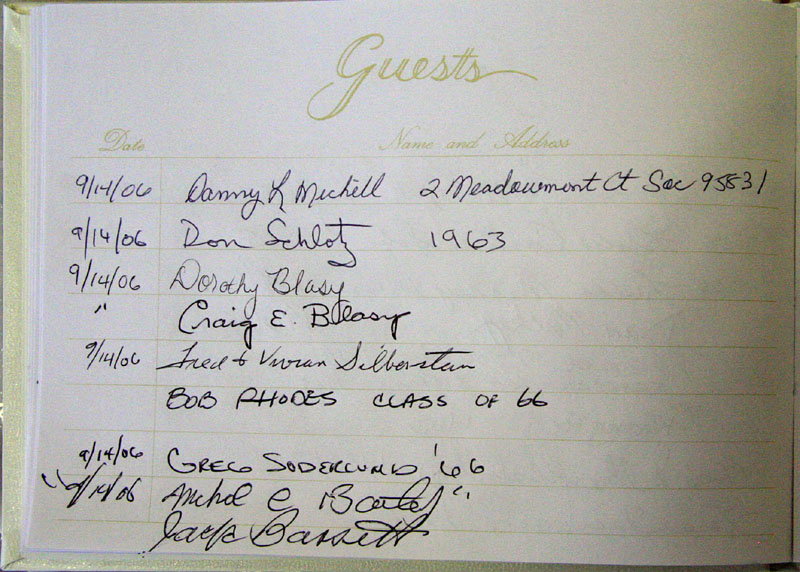 Guests
Date Name and Address
9/14/06 Danny L Michell 2 Meadowmont Ct Sac 95831
9/14/06 Don Schlotz 1963
9/14/06 Dorothy Blasy
" Craig E. Blasy
9/14/06 Fred & Vivian Silberstein
BOB RHODES CLASS OF 66
9/14/06 GREG SODERLUND '66
9/14/06 Michel C "
Jack Bassett